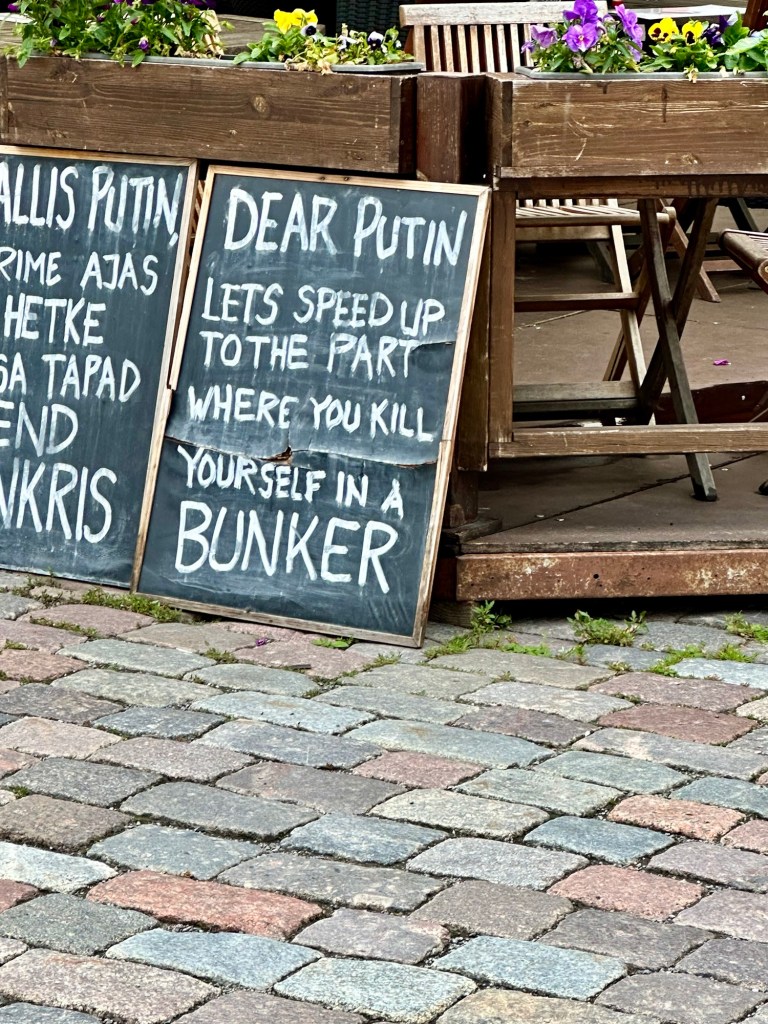 ALLIS PUTIN,
RIME AJAS
HETKE
SA TAPAD
END
NKRIS
DEAR PUTIN
LETS SPEED UP
TO THE PART
WHERE YOU KILL
YOURSELF IN A
BUNKER